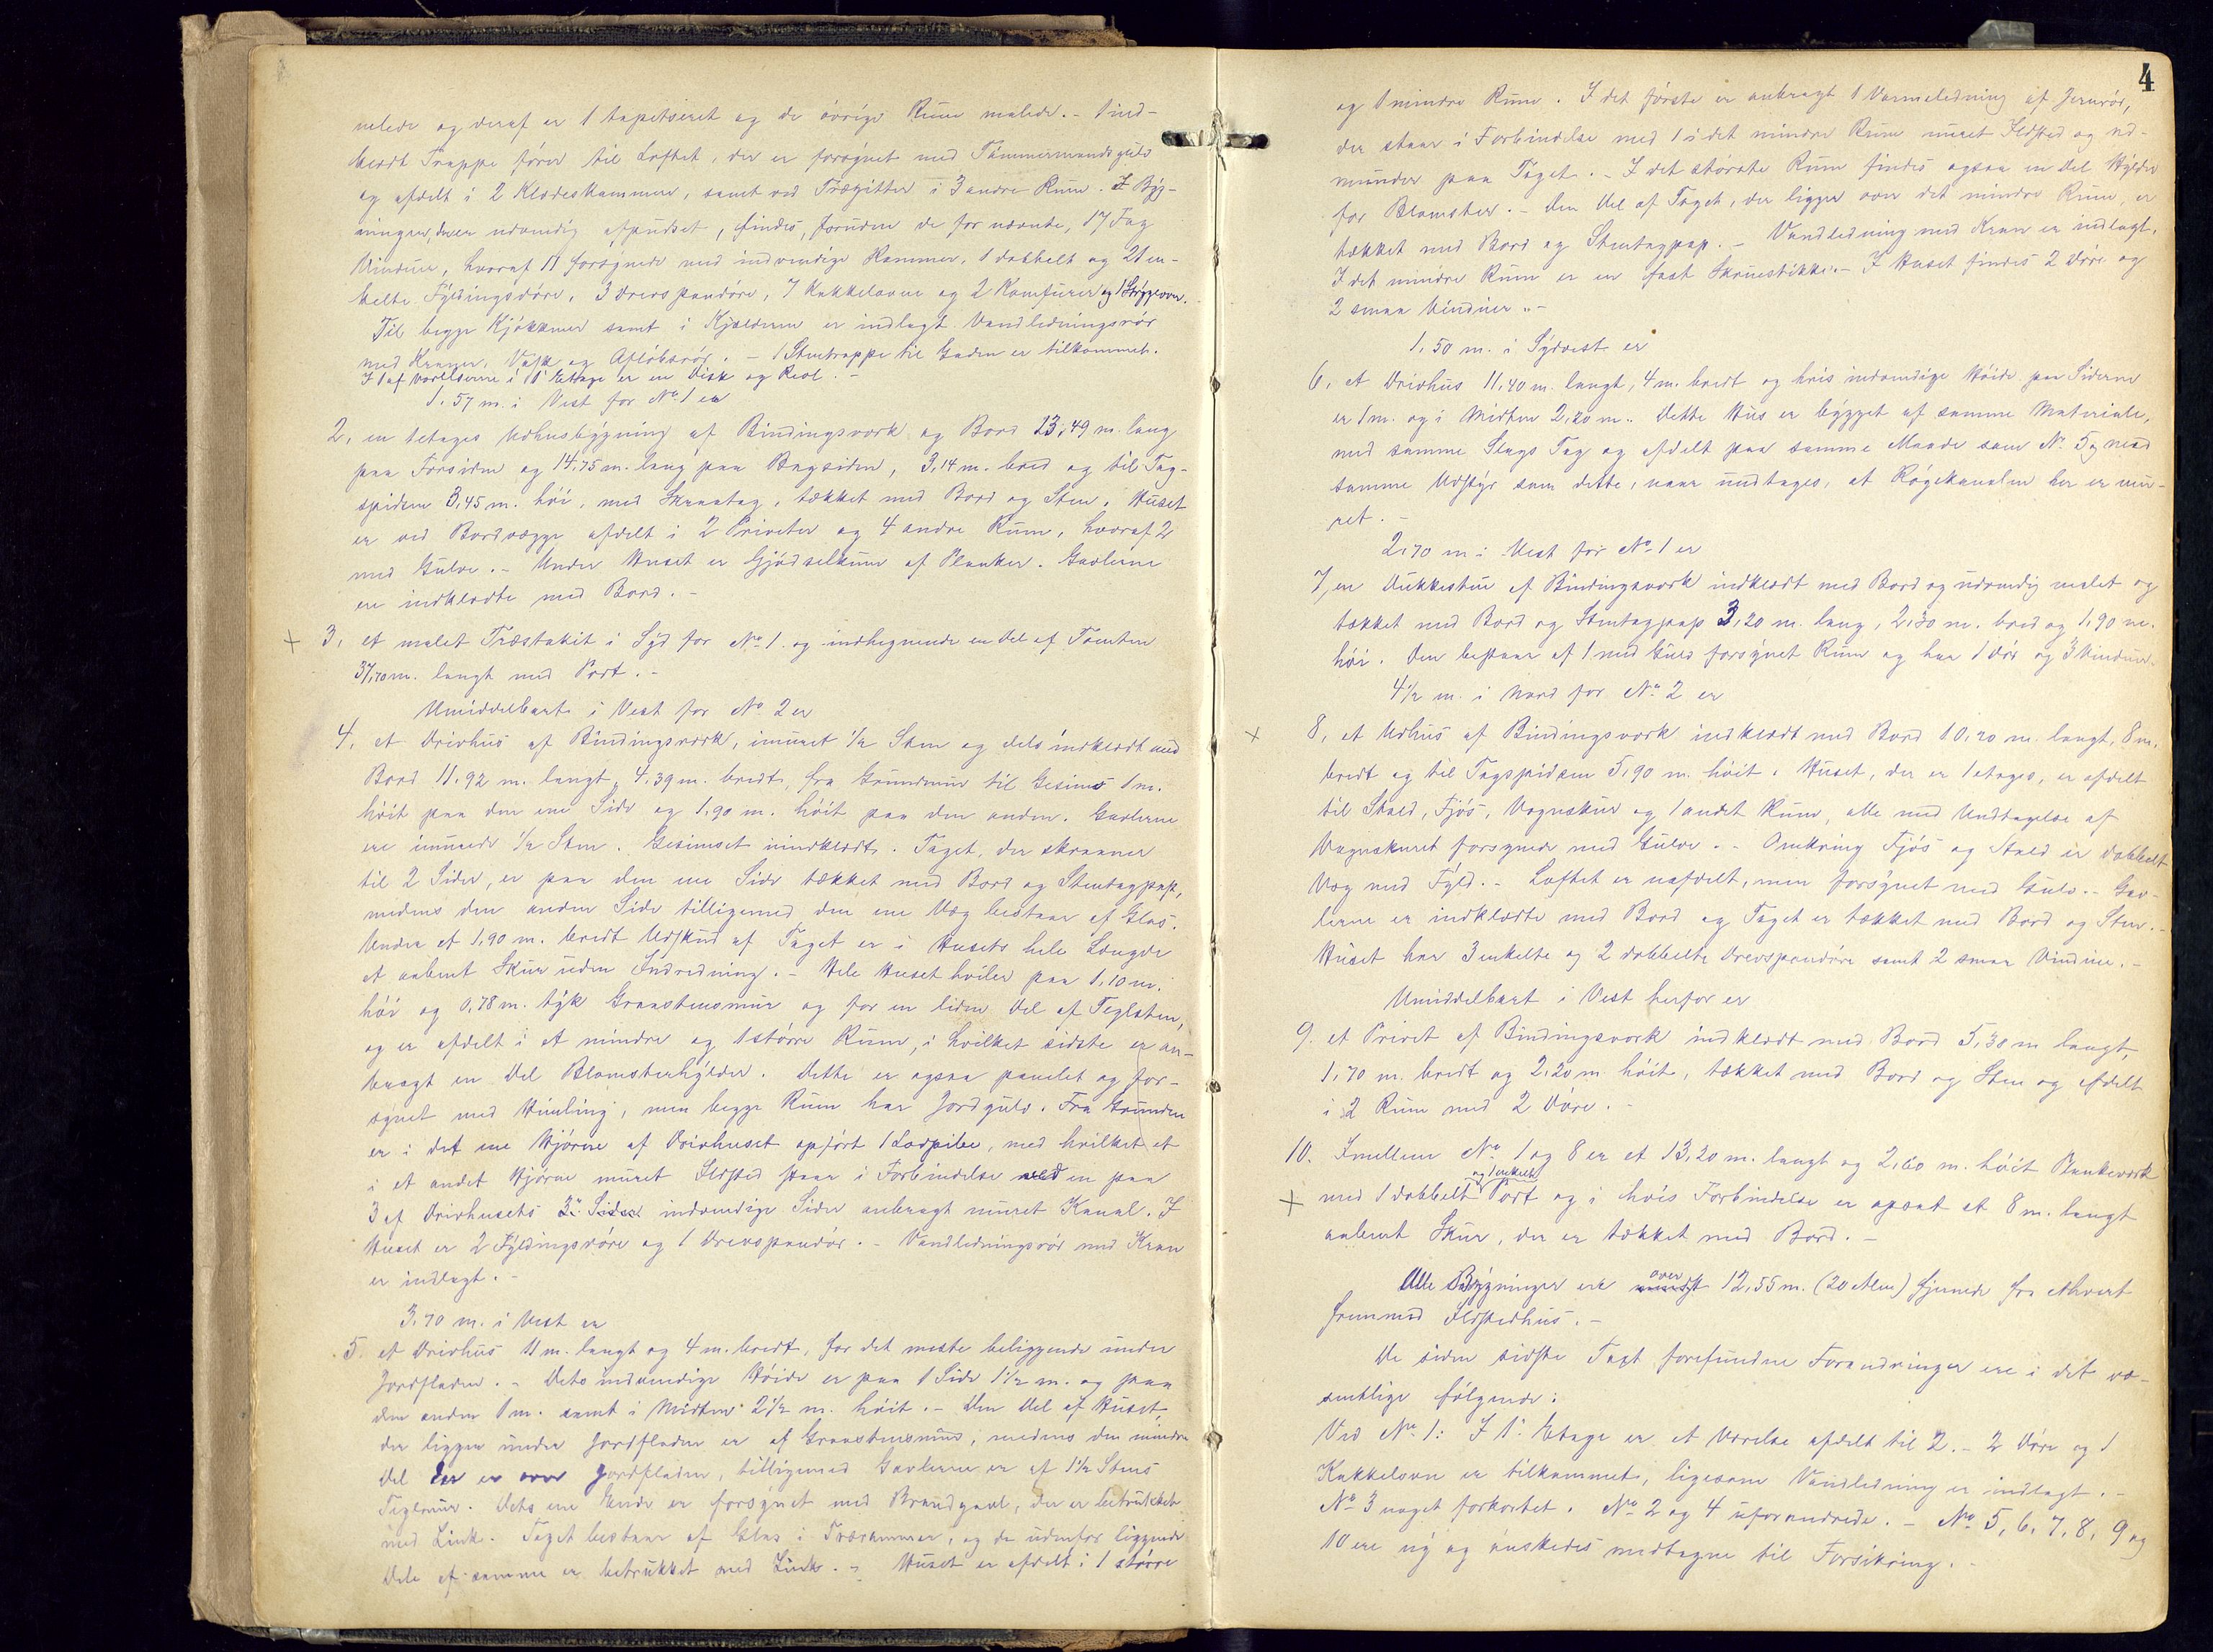 malede og deraf er 1 tapetseret og de övrige Rum malede. – 1 ind-
klædt Trappe förer til Loftet, der er forsÿnet med Tömmermandsgulv
og afdelt i 2 Klædeskammere, samt ved Trægitter i 3 andre Rum. I Bÿg-
ningen, der er udvendig afpudset, findes, foruden de for nævnte, 17 Fag
Vinduer, hvoraf 11 forsÿnede med indvendige Rammer, 1 dobbelt og 21 en-
kelte Fÿldingsdöre, 3 Drevspandöre, 7 Kakkelovne og 2 Komfurer og 1 Strÿgeovn.
Til begge Kjökkener samt i Kjælderen er indlagt Vandledningsrör
med Kraner, Vask og Aflöbsrör. – 1 Stentrappe til Gaden er tilkommet.
I 1 af Værelserne i 1ᵗᵉ Etage er en Disk og Reol. –
1,57 m. i Vest for Nº 1 er
2, en 1 etages Udhusbÿgning af Bindingsværk og Bord 13,49 m. lang
paa Forsiden og 14,75 m. lang paa Bagsiden, 3,14 m. bred og til Tag-
spidsen 3,45 m. höi, med Skraatag, tækket med Bord og Sten. Huset
er ved Bordvægge afdelt i 2 Priveter og 4 andre Rum, hvoraf 2
med Gulve. – Under Huset er Gjödselkum af Planker. Gavlerne
ere indklædte med Bord. –
+ 3, et malet Træstakit i Sÿd for Nº 1 og indhegnende en Del af Tomten
37,70 m. langt med Port. –
Umiddelbart i Vest for Nº 2 er
4, et Drivhus af Bindingsværk, imuret ½ Sten og dels indklædt med
Bord 11,92 m. langt, 4,39 m. bredt, fra Grundmur til Gesims 1 m.
höit paa den ene Side og 1,90 m. höit paa den anden. Gavlerne
ere imurede ½ Sten. Gesimset uindklædt. Taget, der skraaner
til 2 Sider, er paa den ene Side tækket med Bord og Stentagpap,
medens den anden Side tilligemed den ene Væg bestaar af Glas.
Under et 1,90 m. bredt Udskud af Taget er i Husets hele Længde
et aabent Skur uden Indredning. – Hele Huset hviler paa 1,10 m.
höi og 0,78 m. tÿk Graastensmur og for en liden Del af Teglsten,
og er afdelt i et mindre og 1 större Rum, i hvilket sidste er an-
bragt en Del Blomsterhÿlder. Dette er ogsaa panelet og for-
sÿnet med Himling, men begge Rum har Jordgulv. Fra Grunden
er i det ene Hjörne af Drivhuset opfört 1 Lodpibe, med hvilket et
i et andet Hjörne muret Ildsted staar i Forbindelse ved en paa
3 af Drivhusets 3ᵈᵉ Sider indvendige Sider anbragt muret Kanal. I
Huset er 2 Fÿldingsdöre og 1 Drevspandör. – Vandledningsrör med Kran
er indlagt. –
3,70 m. i Vest er
5. et Drivhus 11 m. langt og 4 m. bredt, for det meste beliggende under
Jordfladen. – Dets indvendige Höide er paa 1 Side 1½ m. og paa
den anden 1 m. samt i Midten 2½ m. höit. – Den Del af Huset,
der ligger under Jordfladen er af Graastensmur, medens den mindre
Del der er over Jordfladen, tilligemed Gavlerne er af 1½ Stens
Teglmur. Dets ene Ende er forsÿnet med Brandgavl, der er betrukket
med Zink. Taget bestaar af Glas i Trærammer, og de udenfor liggende
Dele af samme er betrukket med Zink. – Huset er afdelt i 1 större
4
og 1 mindre Rum. I det förste er anbragt 1 Varmeledning af Jernrör,
der staar i Forbindelse med 1 i det mindre Rum muret Ildsted og ud-
munder paa Taget. – I det största Rum findes ogsaa en Del Hÿlder
for Blomster. – Den Del af Taget, der ligger over det mindre Rum, er
tækket med Bord og Stentagpap. – Vandledning med Kran er indlagt.
I det mindre Rum er en fast Skruestikke. – I Huset findes 2 Döre og
2 smaa Vinduer. –
1,50 m. i Sÿdvest er
6, et Drivhus 11,40 m. langt, 4 m. bredt og hvis indvendige Höide paa Siderne
er 1 m. og i Midten 2,20 m. Dette Hus er bÿgget af samme Materiale,
med samme Slags Tag og afdelt paa samme Maade som Nº 5 og med
samme Udstÿr som dette, naar undtages, at Rögekanalen her er mu-
ret. –
2,70 m i Vest for Nº 1 er
7, en Dukkestue af Bindingsværk indklædt med Bord og udvendig malet og
tækket med Bord og Stentagpap 3,20 m. lang, 2,30 m. bred og 1,90 m.
höi. Den bestaar af 1 med Gulv forsÿnet Rum og har 1 Dör og 3 Vinduer.
4½ m. i Nord for Nº 2 er
+ 8, et Udhus af Bindingsværk indklædt med Bord 10,20 m. langt, 8 m.
bredt og til Tagspidsen 5,90 m. höit. Huset, der er 1 etages, er afdelt
til Stald, Fjös, Vognskur og 1 andet Rum, alle med Undtagelse af
Vognskuret forsynede med Gulve. – Omkring Fjös og Stald er dobbelt
Væg med Fÿld. – Loftet er uafdelt, men forsÿnet med Gulv. – Gav-
lerne er indklædte med Bord og Taget er tækket med Bord og Sten. –
Huset har 3 enkelte og 2 dobbelte Drevspandöre samt 2 smaa Vinduer. –
Umiddelbart i Vest herfor er
9. et Privet af Bindingsværk indklædt med Bord 5,30 m langt,
1,70 m. bredt og 2,20 m höit, tækket med Bord og Sten og afdelt
i 2 Rum med 2 Döre. –
10. Imellem Nº 1 og 8 er et 13,20 m. langt og 2,60 m. höit Plankeværk
og 1 enkelt
+ med 1 dobbelt Port og i hvis Forbindelse er opsat et 8 m. langt
aabent Skur, der er tækket med Bord. –
over
Alle Bÿgninger ere mindst 12,55 m. (20 Alen) fjernede fra ethvert
fremmed Ildstedhus. –
De siden sidste Taxt forefundne Forandringer ere i det væ-
sentlige fölgende:
Ved Nº 1: I 1ᵗᵉ Etage er et Værelse afdelt til 2. – 2 Döre og 1
Kakkelovn er tilkommet, ligesom Vandledning er indlagt. –
Nº 3 noget forkortet. Nº 2 og 4 uforandrede. – Nº 5, 6, 7, 8, 9 og
10 ere nÿ og önskedes medtagne til Forsikring. –